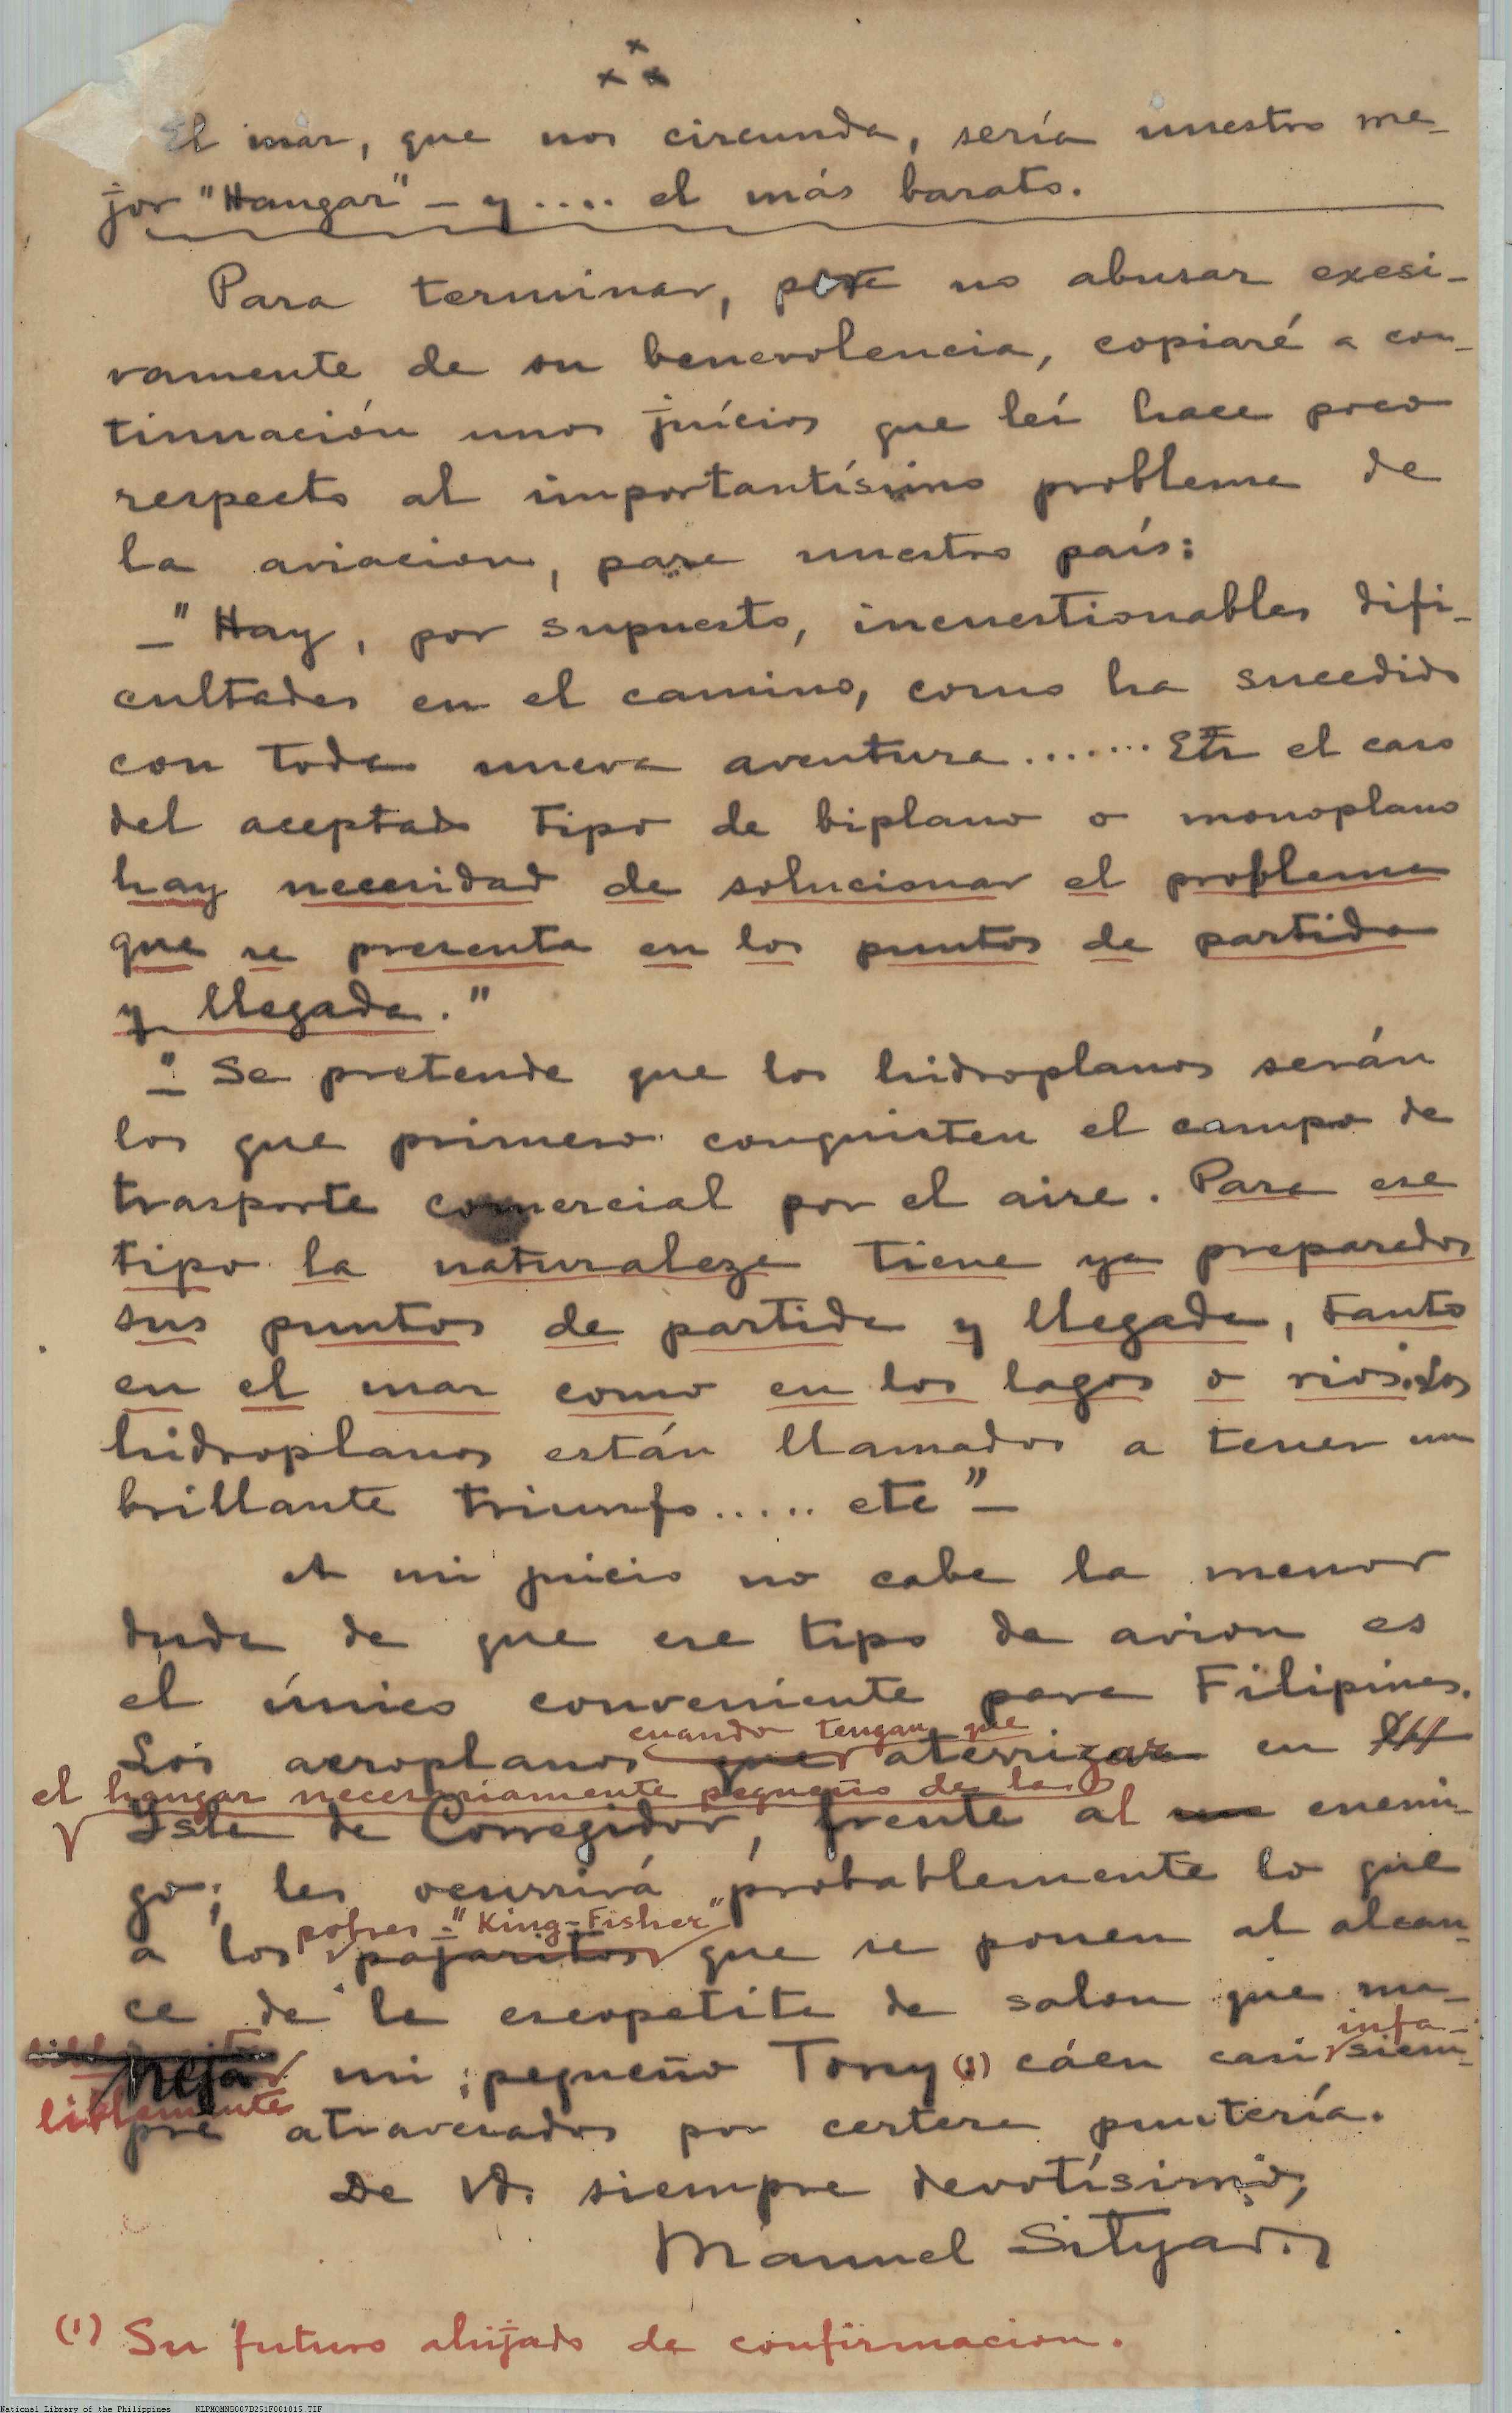 x
x x
El mar, que nos circunda, sería nuestro me-
jor "Hangar" - y .... el más barato.
Para terminar, para no abusar exesi-
vamente de su benevolencia, copiaré a con-
tinuación unos juícios que leí hace poco
respecto al importantísimo problema de
la aviacion, para nuestro país:
-"Hay, por supuesto, incuestionables difi-
cultades en el camino, como ha sucedido
con toda nueva aventura....... En el caso
del aceptado tipo de biplano o monoplano
hay necesidad de solucionar el problema
que se presenta en los puntos de partida
y llegada."
-"Se pretende que los hidroplanos serán
los que primero conquisten el campo de
trasporte comercial por el aire. Para ese
tipo la naturaleza tiene ya preparados
sus puntos de partida y llegada, tanto
en el mar como en los lagos o rios. Los
hidroplanos están llamados a tener un
brillante triunfo..... etc"-
A mi juicio no cabe la menor
duda de que ese tipo de avion es
el único conveniente para Filipinas.
cuando tengan que
Los aeroplanos que aterrizar en
el hangar necesariamente pequeño de la
Isla de Corregidor, frente al enemi-
go; les ocurrirá probablemente lo que
pobres -"King-Fisher"
a los pajaritos que se ponen al alcan-
ce de la escopetita de salon que ma-
infa-
neja mi pequeño Tony (1) cáen casi siem-
liblemente
pre atravesados por certera puntería.
De Vd. siempre devotísimo,
Manuel Sityar.
(1) Su futuro ahijado de confirmacion.
National Library of the Philippines NLPMQMNS007B251F001015.TIF